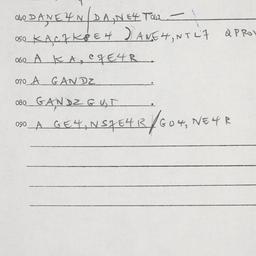 040 DANE4N/DA,NE4T
050 KAC7K E4 ) ANE4,NTL7 QPROV
060 A KA,C7E4R .
070 A GANDZ
080 GANDZGU,T .
090 A GE4,NS7E4R/GO4,NE4R